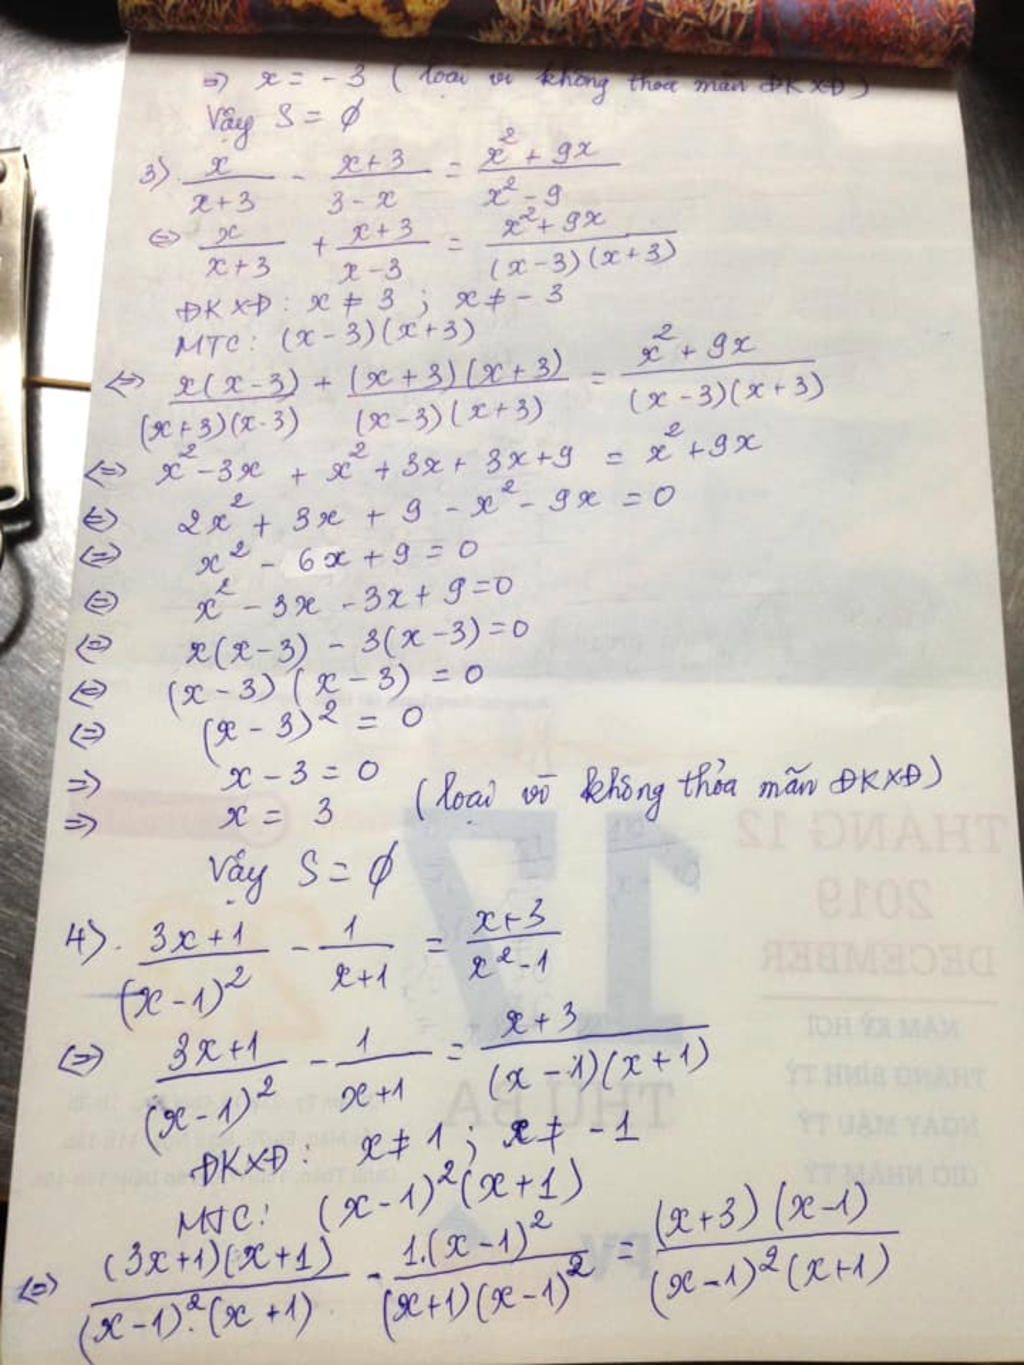 => x = -3 (loại vì không thỏa mãn ĐKXĐ)
Vậy S = ∅
3) x/(x+3) - (x+3)/(3-x) = (x²+9x)/(x²-9)
<=> x/(x+3) + (x+3)/(x-3) = (x²+9x)/((x-3)(x+3))
ĐKXĐ: x ≠ 3 ; x ≠ -3
MTC: (x-3)(x+3)
<=> x(x-3)/((x+3)(x-3)) + (x+3)(x+3)/((x-3)(x+3)) = (x²+9x)/((x-3)(x+3))
<=> x²-3x + x²+3x+3x+9 = x²+9x
<=> 2x²+3x+9-x²-9x = 0
<=> x²-6x+9=0
<=> x²-3x-3x+9=0
<=> x(x-3)-3(x-3)=0
<=> (x-3)(x-3)=0
<=> (x-3)²=0
=> x-3=0
=> x = 3 (loại vì không thỏa mãn ĐKXĐ)
Vậy S = ∅
4). (3x+1)/(x-1)² - 1/(x+1) = (x+3)/(x²-1)
<=> (3x+1)/(x-1)² - 1/(x+1) = (x+3)/((x-1)(x+1))
ĐKXĐ: x ≠ 1 ; x ≠ -1
MTC: (x-1)²(x+1)
<=> (3x+1)(x+1)/((x-1)².(x+1)) - 1.(x-1)²/((x+1)(x-1)²) = (x+3)(x-1)/((x-1)²(x+1))
17
THÁNG 12
2019
DECEMBER
NĂM KỶ HỢI
THÁNG BÍNH TÝ
NGÀY MẬU TÝ
GIỜ NHÂM TÝ
THỨ BA